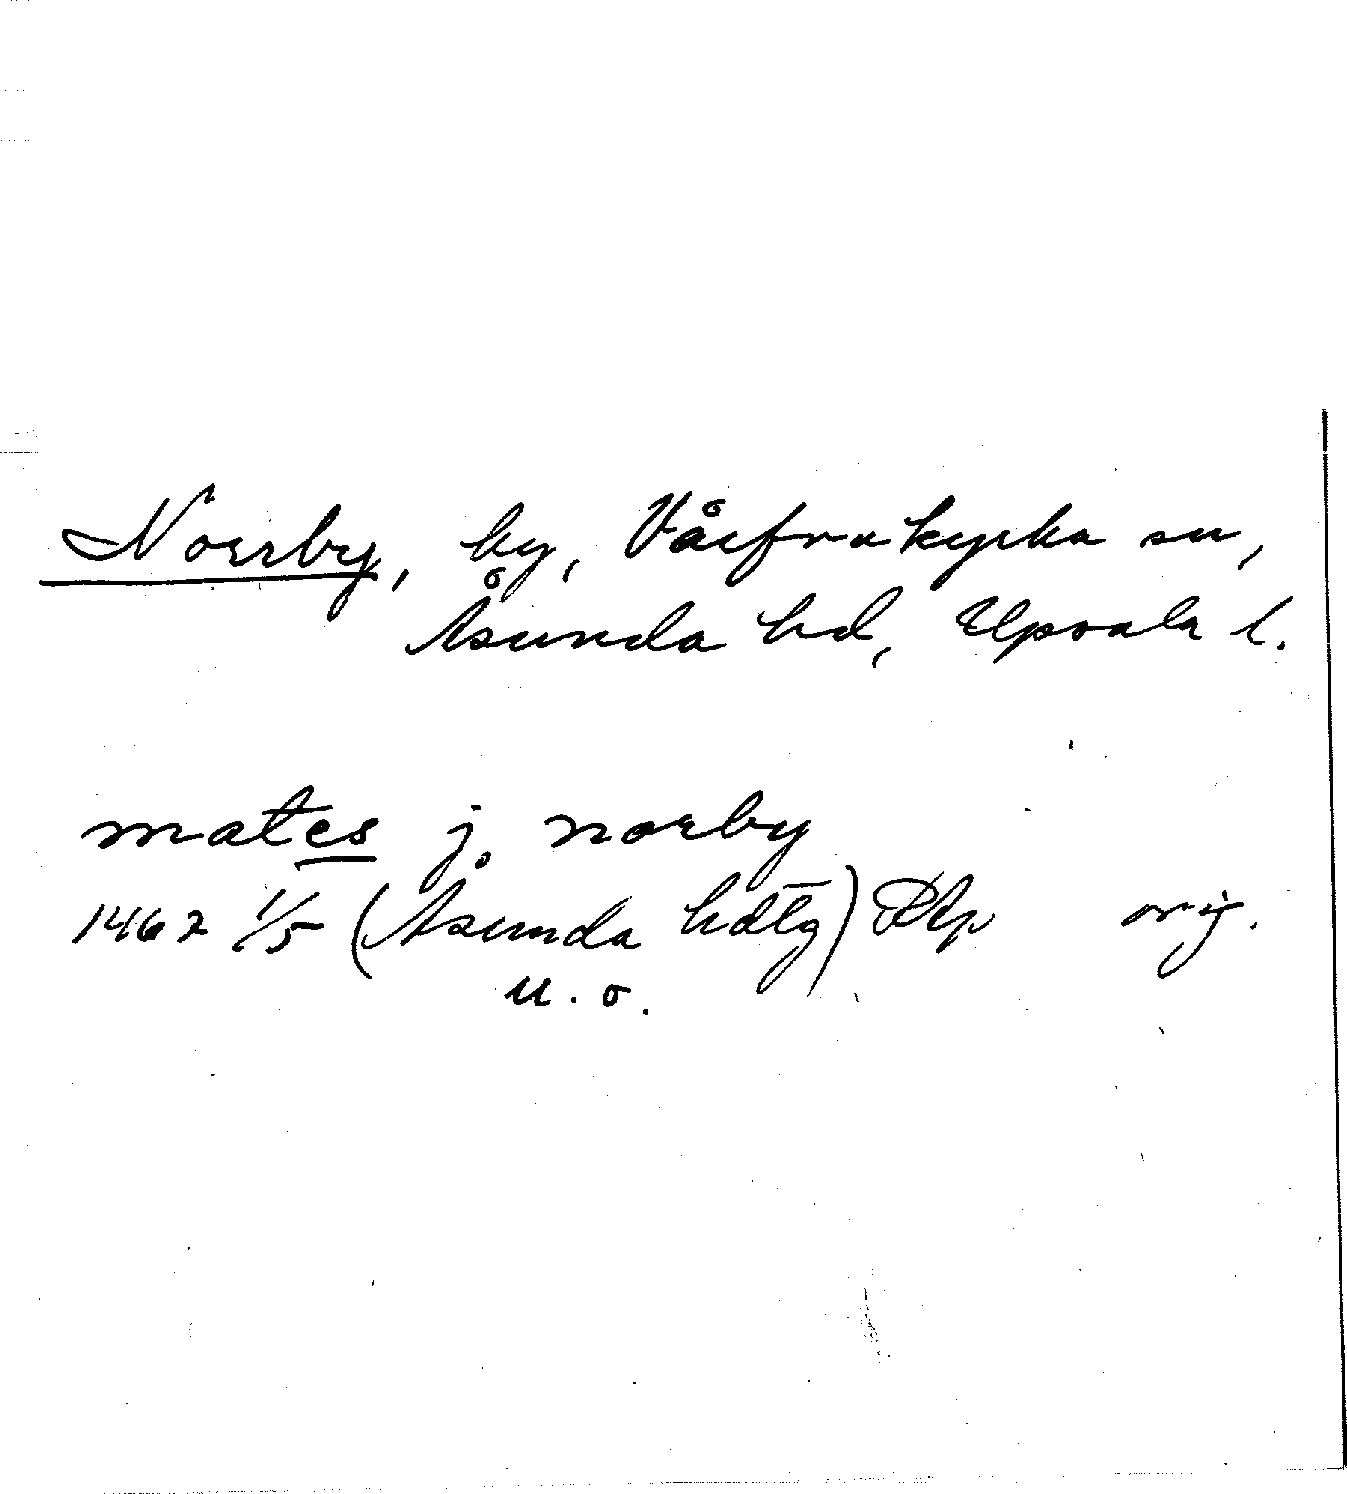 Norrby, by, Vårfrukyrka sn,
Åsunda hd, Upsala l.
mates j. norby
1462 1/5 (Åsunda hdtg) RAp orig.
u. o.